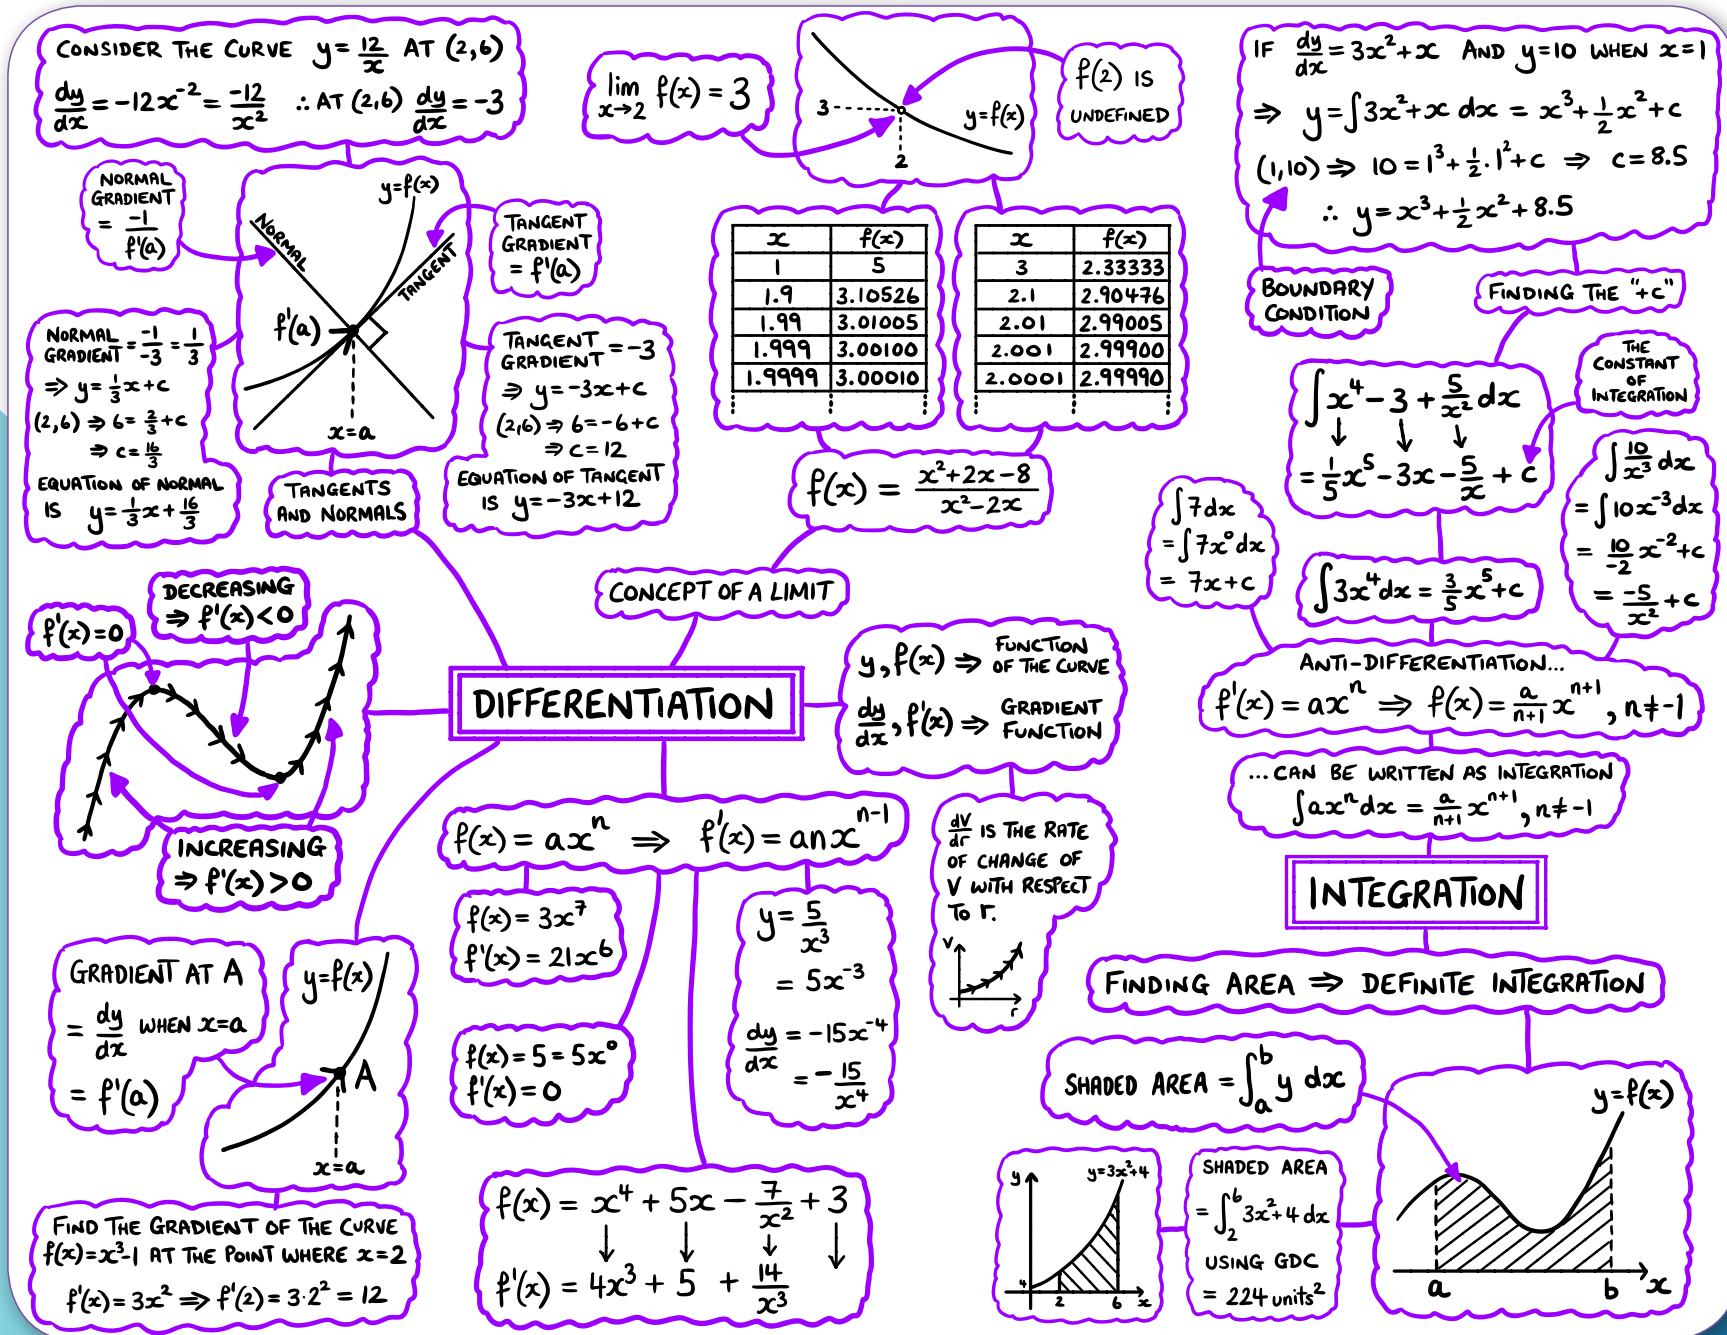 CONSIDER THE CURVE y = 12/x AT (2,6)
dy/dx = -12x⁻² = -12/x² ∴ AT (2,6) dy/dx = -3
NORMAL
GRADIENT
= -1/f'(a)
y=f(x)
NORMAL
TANGENT
f'(a)
x=a
TANGENT
GRADIENT
= f'(a)
NORMAL GRADIENT = -1/-3 = 1/3
⇒ y = 1/3x + c
(2,6) ⇒ 6 = 2/3 + c
⇒ c = 16/3
EQUATION OF NORMAL
IS y = 1/3x + 16/3
TANGENT GRADIENT = -3
⇒ y = -3x + c
(2,6) ⇒ 6 = -6 + c
⇒ c = 12
EQUATION OF TANGENT
IS y = -3x + 12
TANGENTS
AND NORMALS
lim x→2 f(x) = 3
3
2
y=f(x)
f(2) IS
UNDEFINED
x f(x)
1 5
1.9 3.10526
1.99 3.01005
1.999 3.00100
1.9999 3.00010
x f(x)
3 2.33333
2.1 2.90476
2.01 2.99005
2.001 2.99900
2.0001 2.99990
f(x) = x²+2x-8/x²-2x
CONCEPT OF A LIMIT
DIFFERENTIATION
DECREASING
⇒ f'(x) < 0
f'(x) = 0
INCREASING
⇒ f'(x) > 0
y, f(x) ⇒ FUNCTION OF THE CURVE
dy/dx, f'(x) ⇒ GRADIENT FUNCTION
dV/dr IS THE RATE
OF CHANGE OF
V WITH RESPECT
TO r.
V
r
f(x) = axⁿ ⇒ f'(x) = anxⁿ⁻¹
f(x) = 3x⁷
f'(x) = 21x⁶
f(x) = 5 = 5x⁰
f'(x) = 0
y = 5/x³
= 5x⁻³
dy/dx = -15x⁻⁴
= -15/x⁴
f(x) = x⁴ + 5x - 7/x² + 3
f'(x) = 4x³ + 5 + 14/x³
GRADIENT AT A
= dy/dx WHEN x=a
= f'(a)
y=f(x)
A
x=a
FIND THE GRADIENT OF THE CURVE
f(x)=x³-1 AT THE POINT WHERE x=2
f'(x) = 3x² ⇒ f'(2) = 3·2² = 12
IF dy/dx = 3x² + x AND y=10 WHEN x=1
⇒ y = ∫3x² + x dx = x³ + 1/2x² + c
(1,10) ⇒ 10 = 1³ + 1/2·1² + c ⇒ c = 8.5
∴ y = x³ + 1/2x² + 8.5
BOUNDARY
CONDITION
FINDING THE "+c"
THE
CONSTANT
OF
INTEGRATION
∫x⁴ - 3 + 5/x² dx
= 1/5x⁵ - 3x - 5/x + c
∫7dx
= ∫7x⁰dx
= 7x + c
∫3x⁴dx = 3/5x⁵ + c
∫10/x³ dx
= ∫10x⁻³dx
= 10/-2 x⁻² + c
= -5/x² + c
ANTI-DIFFERENTIATION...
f'(x) = axⁿ ⇒ f(x) = a/n+1 xⁿ⁺¹, n≠-1
...CAN BE WRITTEN AS INTEGRATION
∫axⁿdx = a/n+1 xⁿ⁺¹, n≠-1
INTEGRATION
FINDING AREA ⇒ DEFINITE INTEGRATION
SHADED AREA = ∫ₐᵇ y dx
y=f(x)
a
b
x
y
y=3x²+4
4
2
6
x
SHADED AREA
= ∫₂ᵇ 3x²+4 dx
USING GDC
= 224 units²